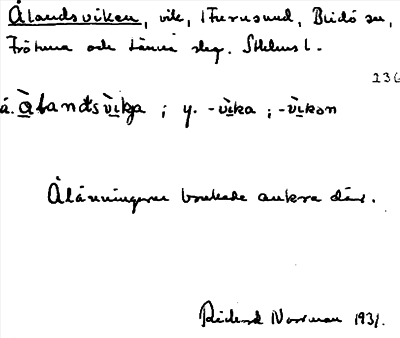 Ålandsviken, vik, i Furusund, Blidö sn,
Frötuna och Länna skg. Sthlms l.
236
å. Àlandsvìkja ; y. -vìka ; -vìkən
Ålänningerne brukade ankra där.
Rickard Norrman 1931.